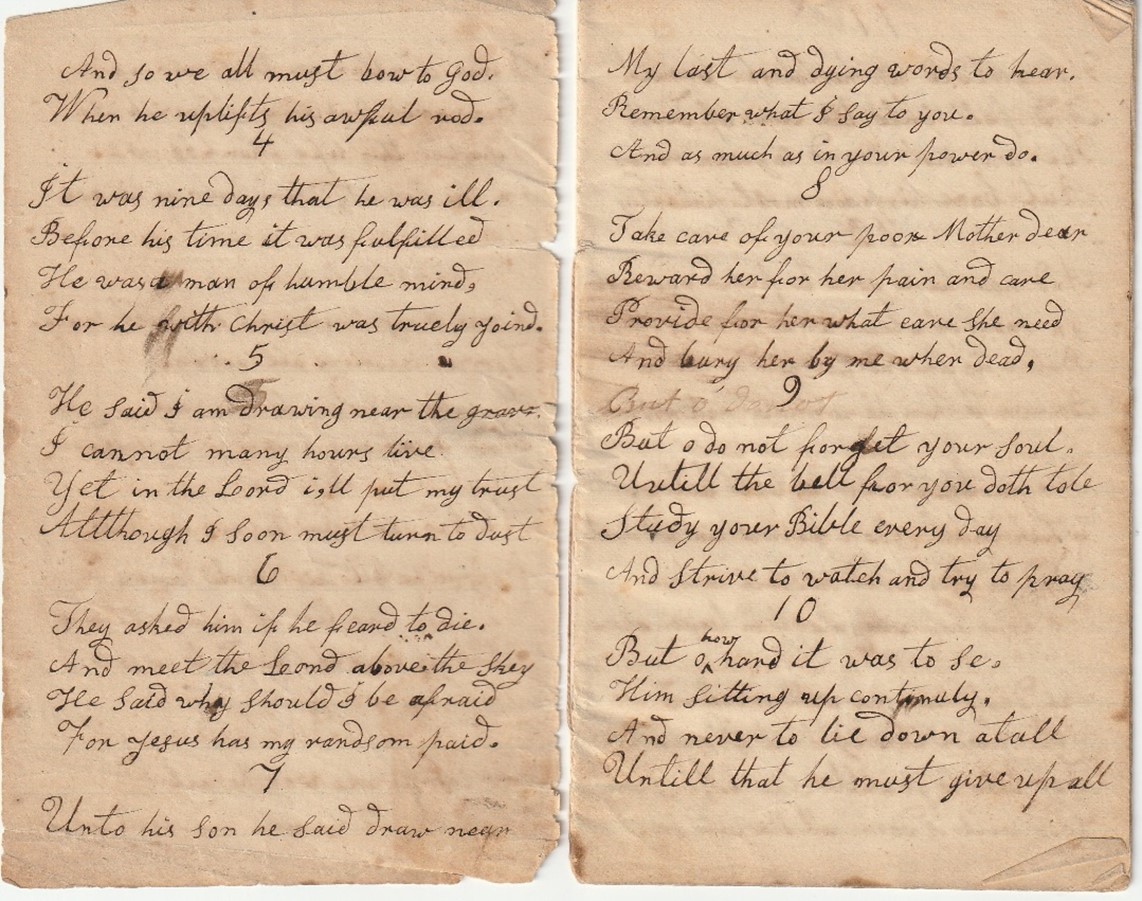 And so we all must bow to God.
When he uplifts his awful rod.
4
It was nine days that he was ill.
Before his time it was fulfilled
He was a man of humble mind,
For he with Christ was truely yoind.
5
He said I am drawing near the grave.
I cannot many hours live.
Yet in the Loord i,ll put my trust
Allthough I soon must turn to dust
6
They asked him if he feard to die.
And meet the Loord above the skey
He said why should I be afraid
For Jesus has my randsom paid.
7
Unto his son he said draw near
My last and dying words to hear.
Remember what I say to you.
And as much as in your power do.
8
Take care of your poor Mother dear
Reward her for her pain and care
Provide for her what eare she need
And bury her by me when dead,
9
But o
But o do not forget your soul.
Untill the bell for you doth tole
Study your Bible every day
And strive to watch and try to pray
10
But o, how hard it was to se.
Him sitting up continuly.
And never to lie down atall
Untill that he must give up all